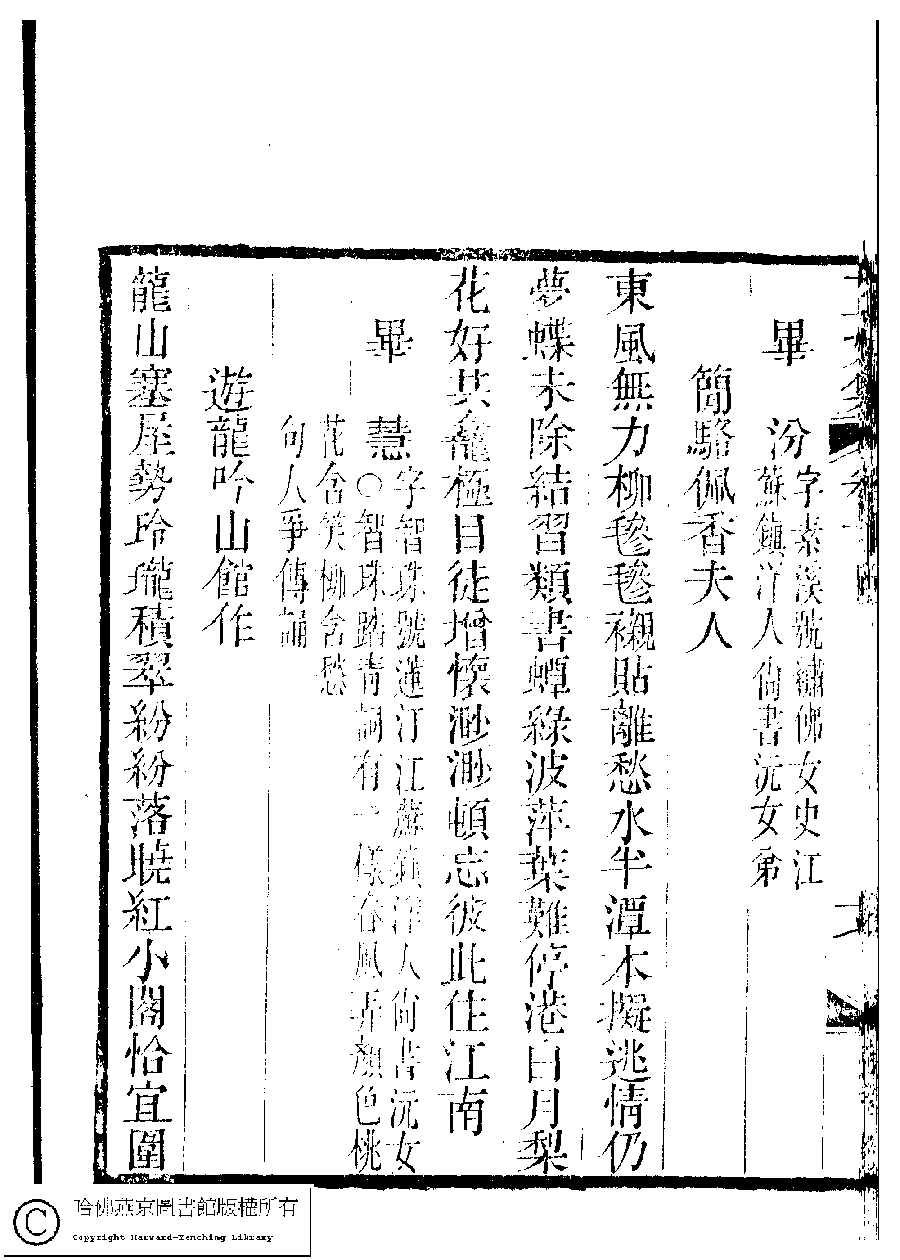 畢　汾
字素溪號繡佛女史江
蘇鎮洋人尚書沅女弟
簡駱佩香夫人
東風無力柳毵毵襯貼離愁水半潭木擬逃情仍
夢蝶未除結習類書蟫綠波萍葉難停港白月梨
花好共龕極目徒增懷渺渺頓忘彼此住江南
畢　慧
字智珠號蓮汀江蘇鎮洋人尚書沅女
○智珠踏青詞有一樣春風弄顏色桃
花含笑柳含愁
句人爭傳誦
遊龍吟山館作
龍山塞屋勢玲瓏積翠紛紛落曉紅小閣恰宜圍
哈佛燕京圖書館版權所有
Copyright Harvard-Yenching Library